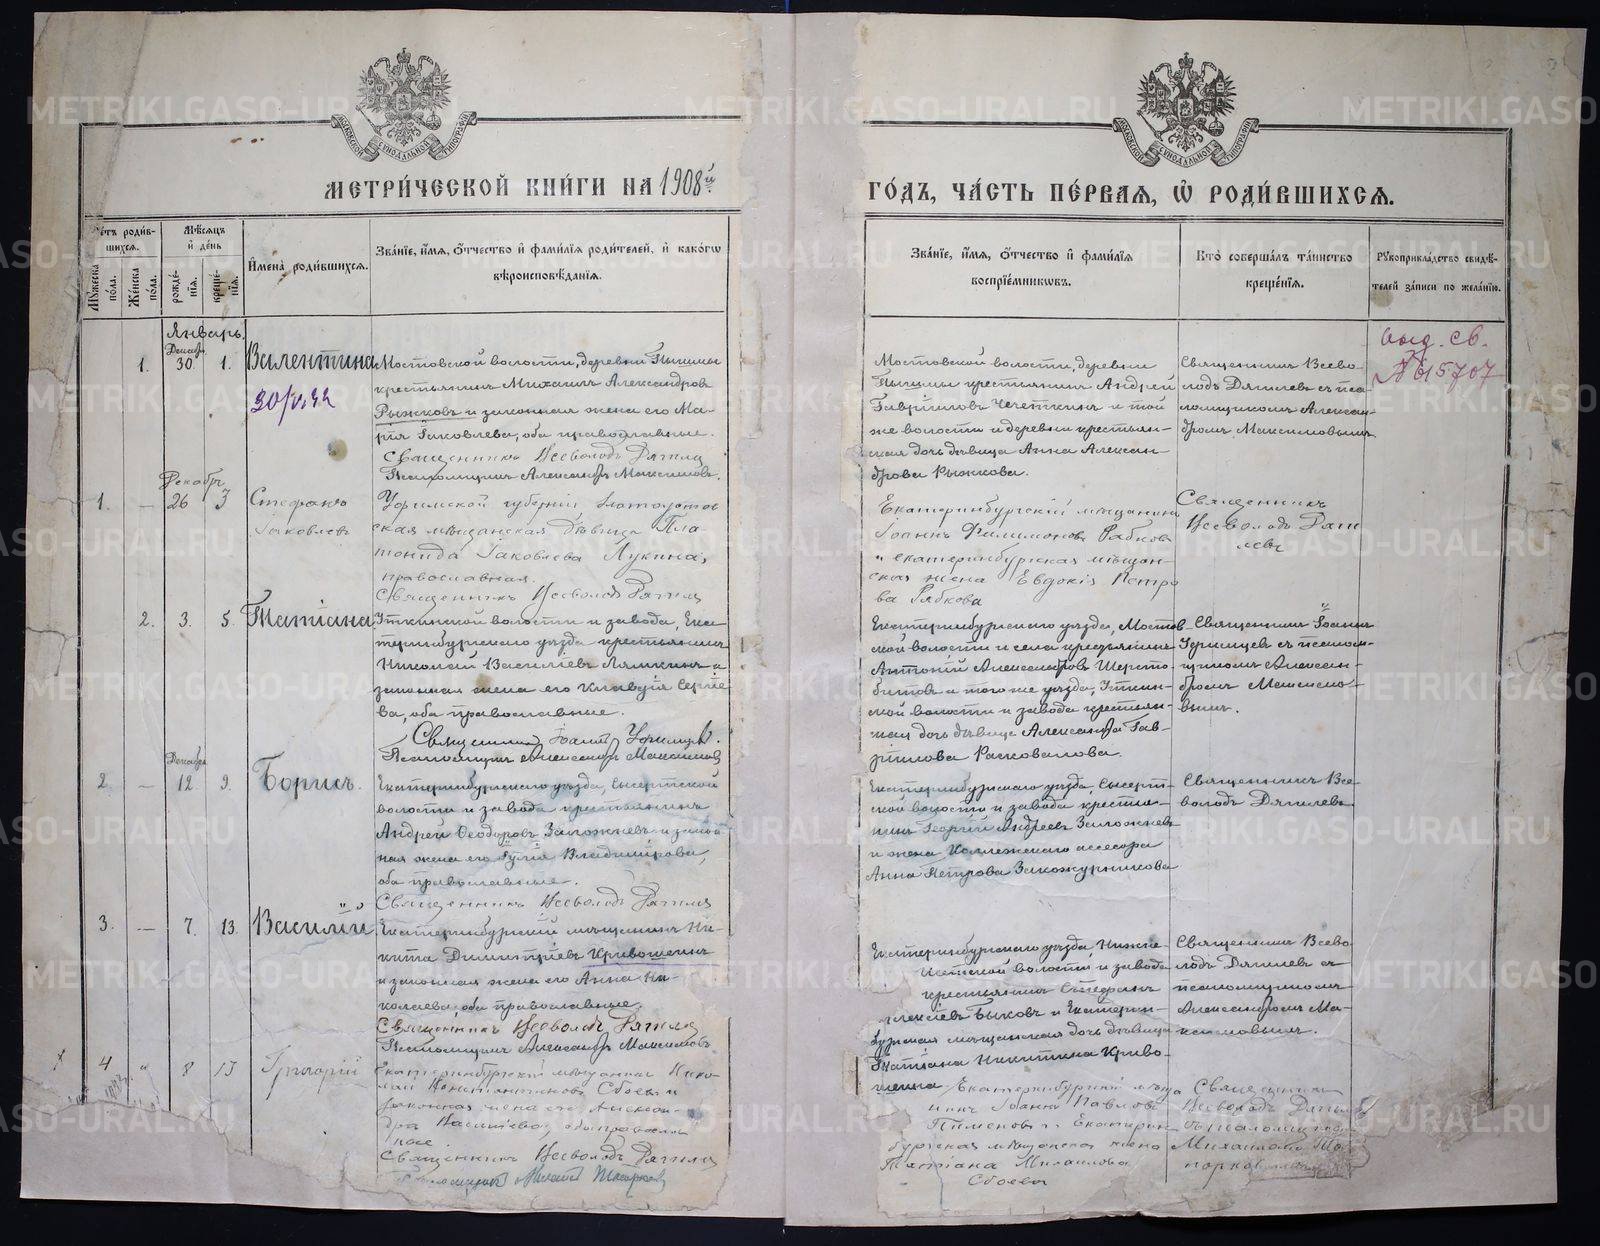 МЕТРИ́ЧЕСКОЙ КНИ́ГИ НА 1908й
ГО́ДЪ, ЧА́СТЬ ПЕ́РВАЯ, Ѡ҆ РОДИ́ВШИХСЯ.
МОСКОВСКОЙ СѴНОДАЛЬНОЙ ТИПОГРАФІИ
МОСКОВСКОЙ СѴНОДАЛЬНОЙ ТИПОГРАФІИ
METRIKI.GASO-URAL.RU
Счетъ роди́вшихся.
Мꙋжеска по́ла.
Же́нска по́ла.
Мѣ́сяцъ и҆ де́нь
рожде́нїя.
креще́нїя.
И҆мена̀ роди́вшихся.
Зва́нїе, и҆́мя, ѻ҆́тчество и҆ фами́лїя роди́телей, и҆ како́гѡ
вѣроисповѣ́данїя.
Зва́нїе, и҆́мя, ѻ҆́тчество и҆ фами́лїя
воспрїе́мникѡвъ.
Кто̀ соверша́лъ та́инство
креще́нїя.
Рꙋкоприкла́дство свидѣ́-
телей за́писи по жела́нїю.
Январь.
1. Декабр. 30. 1. Валентина
Мостовской волости, деревни Пышмы
крестьянинъ Михаилъ Александровъ
Рыжковъ и законная жена его Ма-
рія Іаковлева, оба православные.
Священникъ Всеволодъ
Псаломщикъ Александръ Максимовъ.
Мостовской волости, деревни
Пышмы крестьянинъ Андрей
Гавріиловъ Чечеткинъ и той
же волости и деревни крестьян-
ская дочь дѣвица Анна Алексан-
дрова Рыжкова.
Священникъ Всево-
лодъ съ пса-
ломщикомъ Алексан-
дромъ Максимовымъ
№ 615707
1. — Декабр. 26 3 Стефанъ
Іаковлевъ
Уфимской губерніи Златоустов
ская мѣщанская дѣвица Пла-
тонида Іаковлева Лукина,
православная.
Священникъ Всеволодъ
Екатеринбургскій мѣщанинъ
Іоаннъ Филимоновъ Рябков
и екатеринбургская мѣщан-
ская жена Евдокія Петро
ва Рябкова
Священникъ
Всеволодъ
2. 3. 5. Татіана.
Уткинской волости и завода, Ека
теринбургскаго уѣзда крестьянинъ
Николай Василіевъ Лямкинъ и
законная жена его Клавдія Сергіе
ва, оба православные.
Священникъ Іоаннъ
Псаломщикъ Александръ Максимовъ
Екатеринбургскаго уѣзда, Мостов-
ской волости и села крестьянинъ
Антоній Александровъ Шерсто-
битовъ и того же уѣзда, Уткин-
ской волости и завода крестьян-
ская дочь дѣвица Александра Гав-
ріилова Расковалова.
Священникъ Іоаннъ
съ псалом-
щикомъ Алексан-
дромъ Максимо-
вымъ.
2 — Декабря 12. 9. Борисъ.
Екатеринбургскаго уѣзда, Сысертской
волости и завода крестьянинъ
Андрей Ѳеодоровъ Заложневъ и закон
ная жена его Юлія Владимірова,
оба православные.
Священникъ Всеволодъ
Екатеринбургскаго уѣзда, Сысерт-
ской волости и завода крестья-
нинъ Георгій Андреевъ Заложневъ
и жена Коллежскаго ассесора
Анна Петрова Закожурникова
Священникъ Все-
володъ
3. — 7. 13. Василій
Екатеринбургскій мѣщанинъ Ни-
кита Димитріевъ Кривошеинъ
и законная жена его Анна Ни-
колаева, оба православные.
Священникъ Всеволодъ
Псаломщикъ Александръ Максимовъ.
Екатеринбургскаго уѣзда, Нижне-
Исетской волости и завода
крестьянинъ Стефанъ
Алексіевъ Быковъ и Екатерин-
бургская мѣщанская дочь дѣвица
Татіана Никитина Криво-
шеина
Священникъ Всево
лодъ съ
псаломщикомъ
Александромъ Ма-
ксимовымъ.
4 „ 8 13 Григорій
Екатеринбургскій мѣщанинъ Нико-
лай Константиновъ Сбоевъ и
законная жена его Алексан-
дра Василіева, оба православ
ные
Священникъ Всеволодъ
Псаломщикъ Михаилъ
Екатеринбургскій мѣща
нинъ Іоаннъ Павловъ
Пименовъ и Екатерин
бургская мѣщанская жена
Татіана Михаилова
Сбоева
Священникъ
Всеволодъ
съ псаломщико
Михаиломъ То-
порковымъ